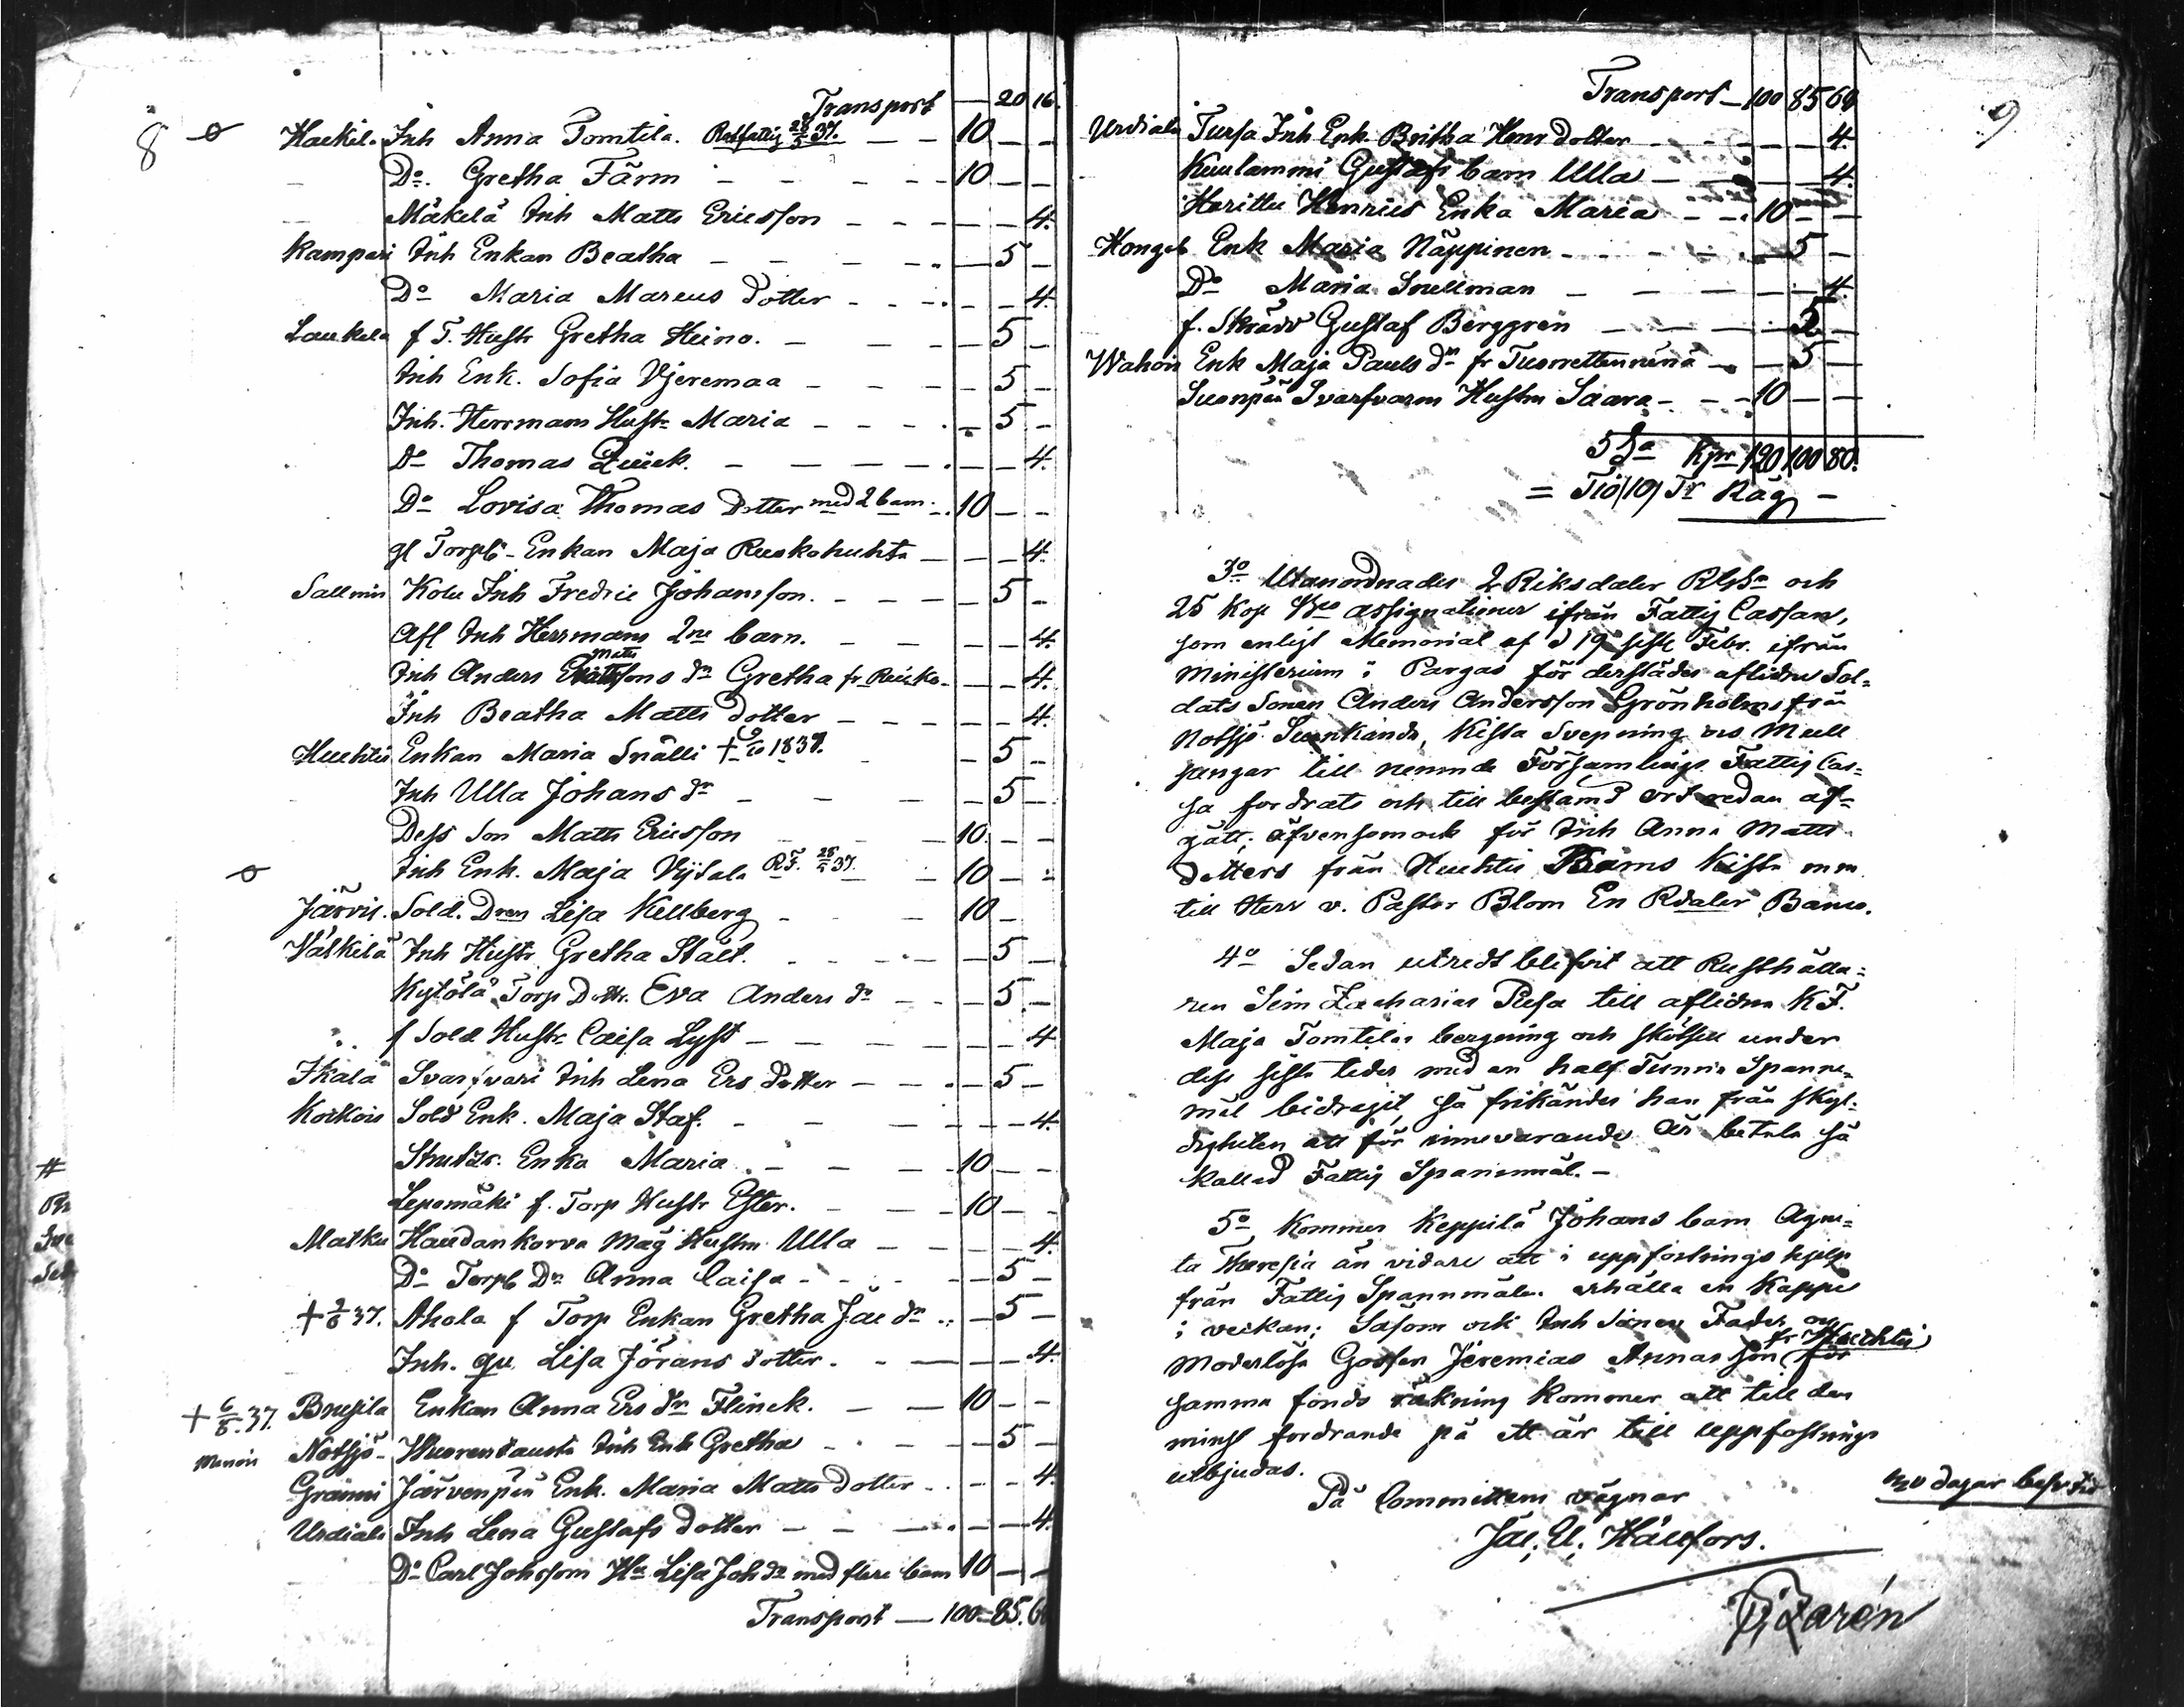 8
Transport — 20 16.
Hackil. Inh Anna Tomtila. Rotfattig 28/5 37. — — 10 — —
Do. Gretha Färm — — — — 10 — —
Mäkelä Inh Matts Ericsson — — — — — 4.
Kampari Inh Enkan Beatha — — — — 5 —
Do Maria Marcus Dotter — — — — 4.
Laukela f T. Hustr Gretha Heino. — — — 5 —
Inh Enk. Sofia Yjeremaa — — — — 5 —
Inh. Herrmans Hustr Maria — — — — 5 —
Do Thomas Quick. — — — — — 4.
Do Lovisa Thomas Dotter med 2 barn. 10 — —
gl Torpb. Enkan Maja Ruokohuhta — — — 4.
Sallmis Kolu Inh Fredric Johansson. — — — — 5 —
Afl Inh Herrmans 2ne barn. — — — — 4.
Inh Anders Mattssons dr Gretha fr Ruisko. — — 4.
Matts
Inh Beatha Matts Dotter — — — — — 4.
Huhtis Enkan Maria Snälli + 1837. — 5 —
Inh Ulla Johans dr — — — — 5 —
Dess Son Matts Ericsson 10 — —
Inh Enk. Maja Vijsala R.F. 28/5 37. — 10 — —
Järvis. Sold. Dren Lisa Kellberg — — — 10 —
Välkilä Inh Hustr Gretha Stält. — — — — 5 —
Kylölä Torp Dottr. Eva Anders dr — — — 5 —
f Sold Hustr. Caisa Lyst — — — — — 4
Ikala Svarfvari Inh Lena Ers Dotter — — — 5 —
Koikois Sold Enk. Maja Staf. — — — — — 4.
Enka Maria — — — 10 — —
Lepomäki f. Torp Hustr Ester. — — — 10 — —
Matku Haudankorva Måg Hustru Ulla — — — — 4.
Do Torpb Dr Anna Caisa — — — — 5 —
+ 2/6 37. Ahola f Torp Enkan Gretha Jac dr — 5 —
Inh. qv. Lisa Jörans Dotter. — — — — 4.
+ 6/8. 37. Brusila Enkan Anna Ers dr Flinck. — — 10 — —
Notsjö Wuorentausta Inh Enk Gretha — — — 5 —
Järvenpää Enk. Maria Matts Dotter — — — 4.
Urdiala Inh Lena Gustafs Dotter — — — — 4.
Do Carl Johssons Hu Lisa Joh dr med flere barn 10 — —
Transport — 100 — 85. 6
9
Transport — 100 85 64
Urdiala Tursa Inh Enk. Britha Henr Dotter — — — — 4.
Kuulammi Gustafs barn Ulla — — — 4.
Harittu Henrics Enka Maria — — 10 — —
Honget Enk Maria Näppinen — — — — 5 —
Do Maria Snellman — — — — — 4.
f. Skrädd Gustaf Berggren — — — — 5 —
Wahois Enk Maja Pauls dr fr Tuorrettunnénä — — 5 —
Suonpää Svarfvarn Hustru Saara — — — 10 — —
Sa Kpr 120 100 80.
= Tio (10) Tr Råg —
3o Utanordnades 2 Riksdaler RGsa och
25 Kop Bco assignationer ifrån Fattig Cassan,
som enligt Memorial af d 19 sistl Febr. ifrån
Ministerium i Pargas för derstädes aflidne Sol-
dats Sonen Anders Andersson Grönholms från
Notsjö Kista Svepning och Mull
pengar till nemnde Församlings Fattig Cas-
sa fordrats och till bestämd ort redan af-
gått; äfvensom ock för Inh Anna Matts
dotters från Huhtis Barns Kista m m
till Herr v. Pastor Blom En Rdaler Banco.
4o Sedan utredt blifvit att Rusthålla-
ren Sim Zacharias Pusa till aflidne R.F.
Maja Tomtilas bergning och skötsel under
dess sista tider med en half Tunna Spanne-
mål bidragit, så frikändes han från skyl-
digheten att för innevarande år betala så
kallad Fattig Spannmål. —
5o Kommer Keppilä Johans barn Agne-
ta Theresia än vidare att i uppfostrings hjelp
från Fattig Spannmåln erhålla en Kappe
i veckan; Såsom ock Inh Sonen Fader och
Moderlösa Gossen Jeremias Annas Son fr Huhtis för
samma fonds räkning kommer att till den
minst fordrande på ett år till uppfostrings
utbjudas.
På Committéens vägnar
Jac. U. Hällfors.